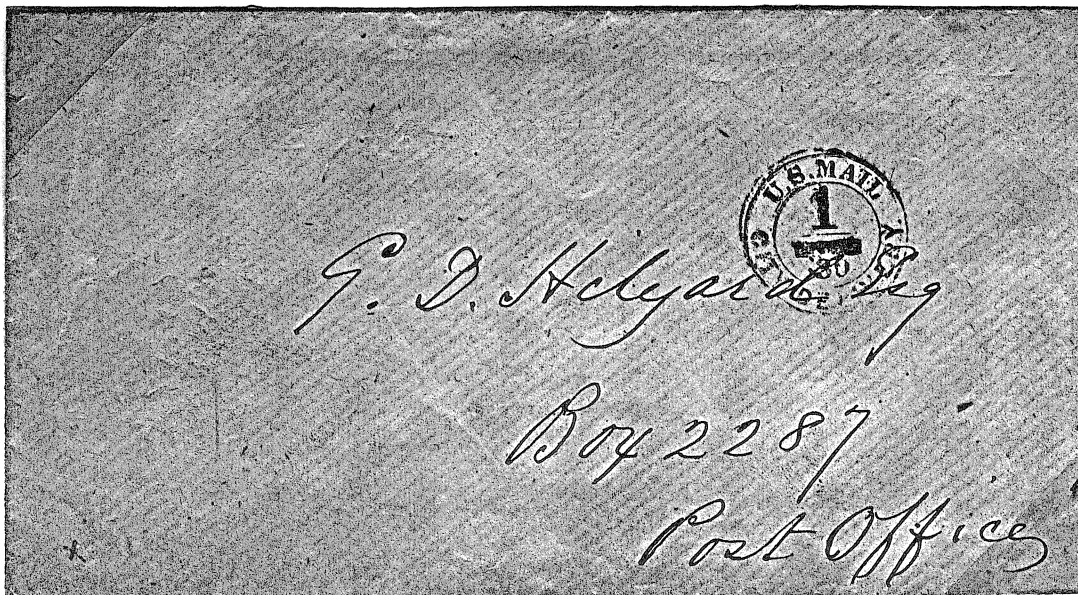 U.S. MAIL
CITY
1
30
G. D. Hilyard Esq
Box 2287
Post Office